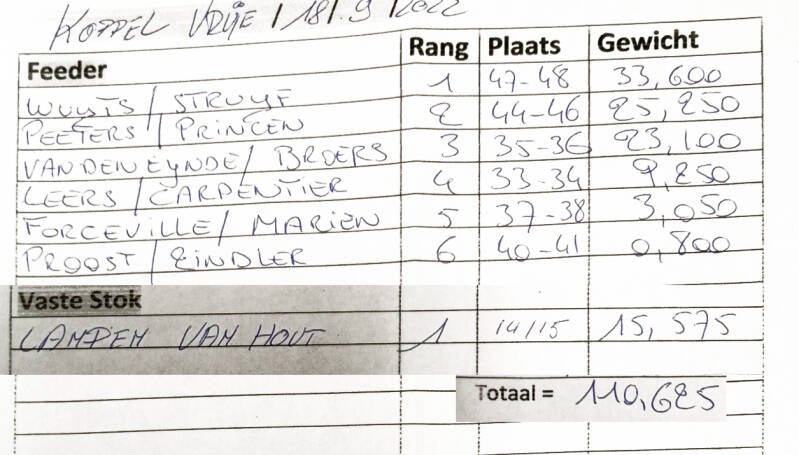 KOPPEL VRIJE / 18/.9 /2022
Feeder Rang Plaats Gewicht
WUYTS / STRUYF 1 47-48 33,600
PEETERS / PRINCEN 2 44-46 25,250
VANDENEYNDE / BROERS 3 35-36 23,100
LEERS / CARPENTIER 4 33-34 9,250
FORCEVILLE / MARIEN 5 37-38 3,050
PROOST / ZINDLER 6 40-41 0,800
Vaste Stok
LAMPEN VAN HOUT 1 14/15 15,575
Totaal = 110,625